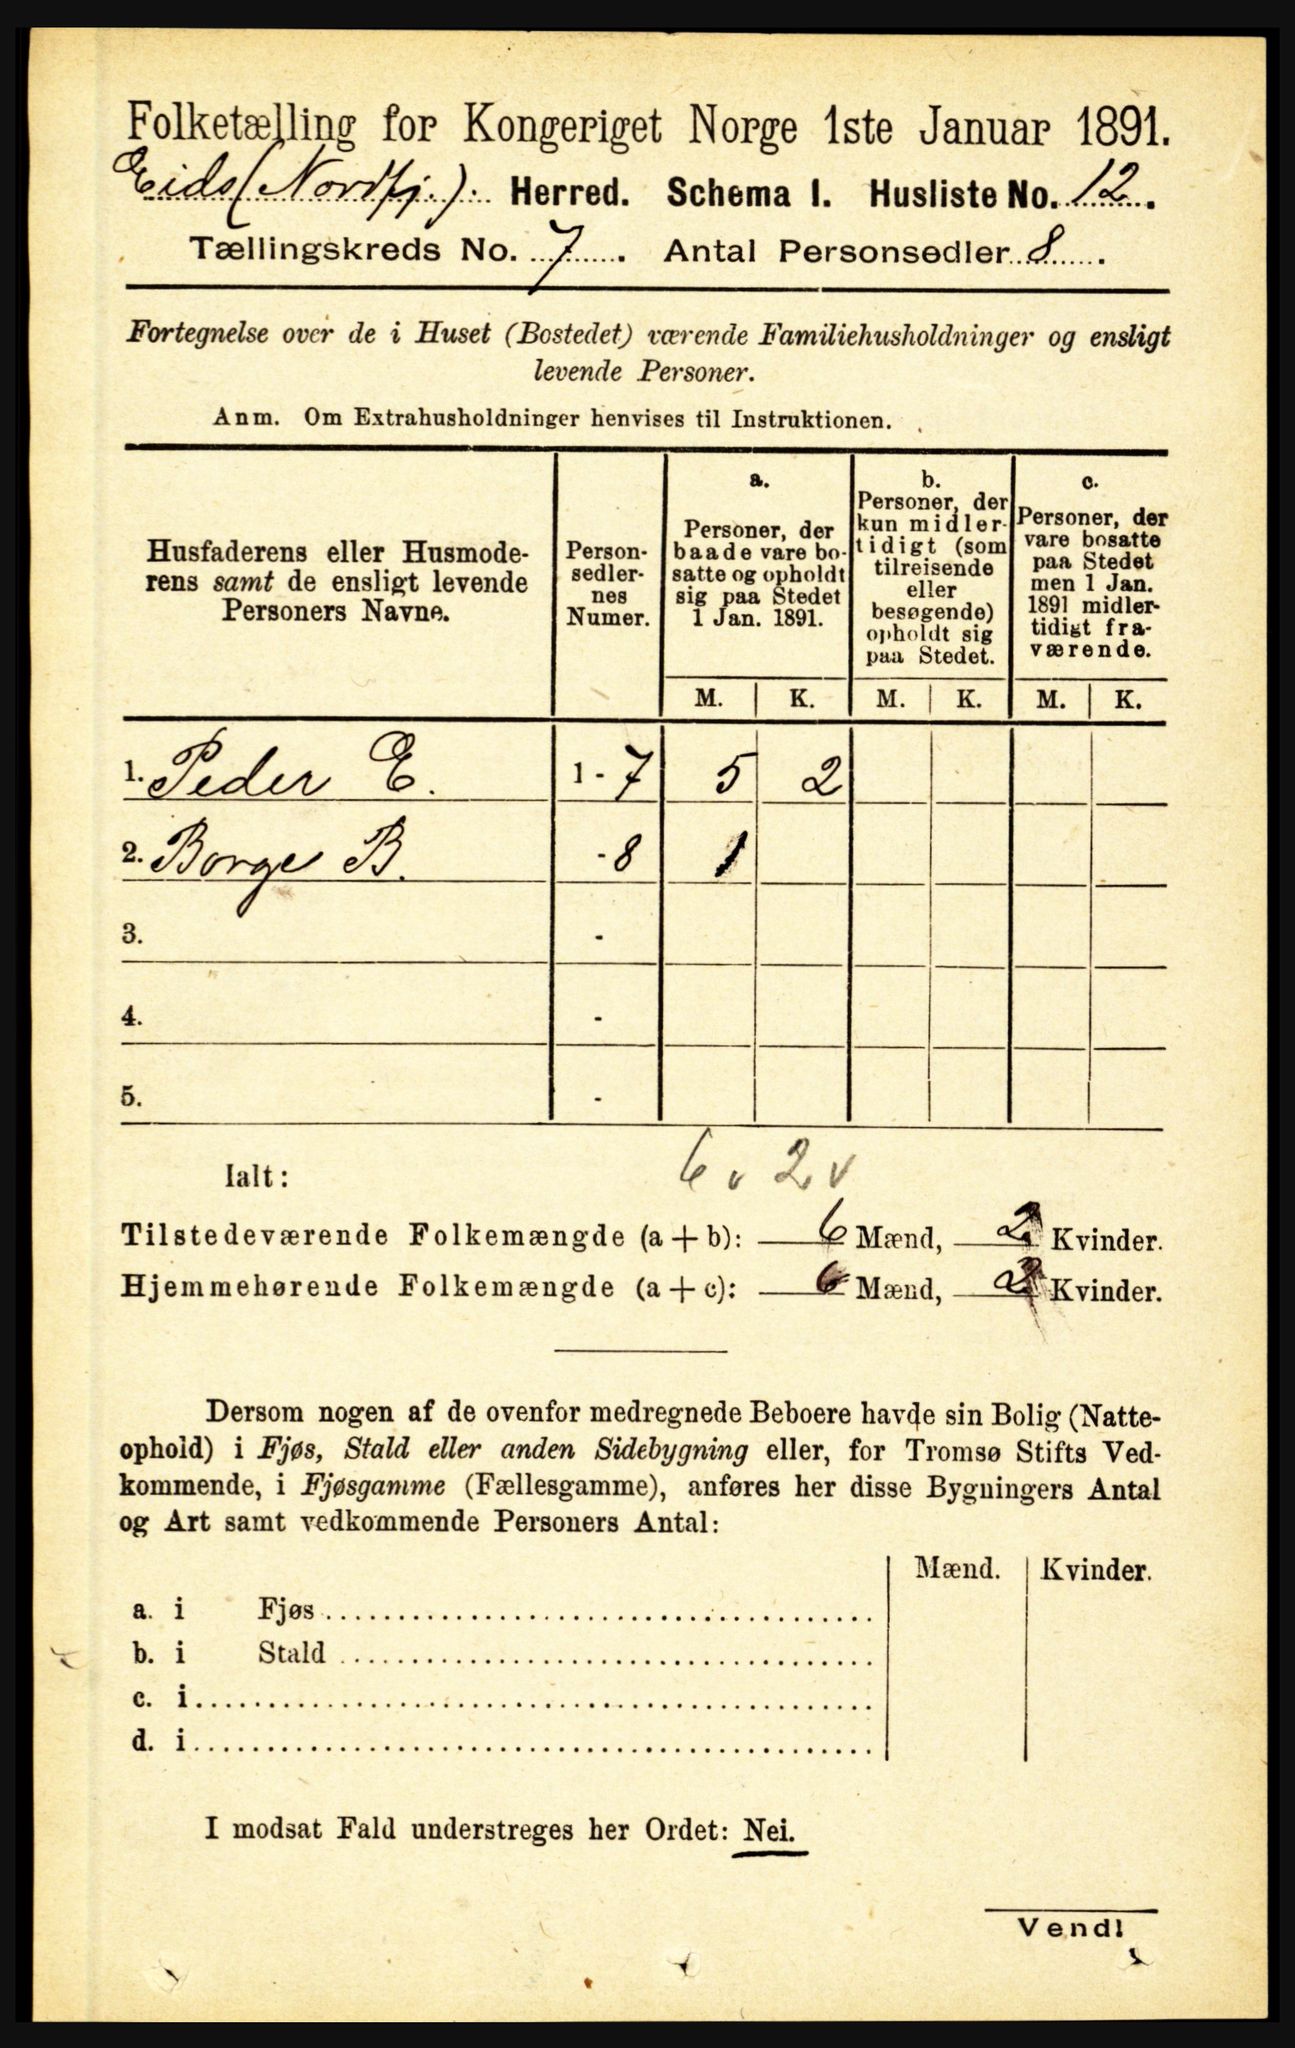 Folketælling for Kongeriget Norge 1ste Januar 1891.
Eids (Nordfj.). Herred. Schema I. Husliste No. 12.
Tællingskreds No. 7. Antal Personsedler 8.
Fortegnelse over de i Huset (Bostedet) værende Familiehusholdninger og ensligt
levende Personer.
Anm. Om Extrahusholdninger henvises til Instruktionen.
Husfaderens eller Husmode-
rens samt de ensligt levende
Personers Navne.
Person-
sedler-
nes
Numer.
a.
Personer, der
baade vare bo-
satte og opholdt
sig paa Stedet
1 Jan. 1891.
b.
Personer, der
kun midler-
tidigt (som
tilreisende
eller
besøgende)
opholdt sig
paa Stedet.
c.
Personer, der
vare bosatte
paa Stedet
men 1 Jan.
1891 midler-
tidigt fra-
værende.
M. K. M. K. M. K.
1. Peder E. 1 - 7 5 2
2. Borge B. - 8 1
3. -
4. -
5. -
6 v 2 v
Ialt:
Tilstedeværende Folkemængde (a + b): 6 Mænd, 2 Kvinder.
Hjemmehørende Folkemængde (a + c): 6 Mænd, 2 Kvinder.
Dersom nogen af de ovenfor medregnede Beboere havde sin Bolig (Natte-
ophold) i Fjøs, Stald eller anden Sidebygning eller, for Tromsø Stifts Ved-
kommende, i Fjøsgamme (Fællesgamme), anføres her disse Bygningers Antal
og Art samt vedkommende Personers Antal:
Mænd. Kvinder.
a. i Fjøs
b. i Stald
c. i
d. i
I modsat Fald understreges her Ordet: Nei.
Vend!